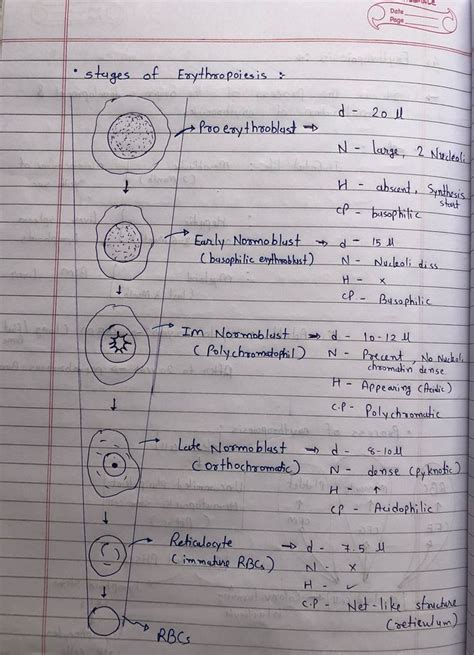 Date
Page
• Stages of Erythropoiesis :-
→ Proerythroblast → d - 20 μ
N - large, 2 Nucleoli
H - absent, Synthesis start
CP - basophilic
→ Early Normoblast → d - 15 μ
(basophilic erythroblast) N - Nucleoli diss
H - x
CP - Basophilic
→ Im Normoblast → d - 10-12 μ
(Polychromatophil) N - Precent, No Nucleoli
chromatin dense
H - Appearing (Acidic)
C.P - Polychromatic
→ Late Normoblast → d - 8-10 μ
(orthochromatic) N - dense (pyknotic)
H - ↑
CP - Acidophilic
→ Reticalocyte → d - 7.5 μ
(immature RBCs) N - x
H - ✓
C.P - Net-like structure
(reticulum)
→ RBCs